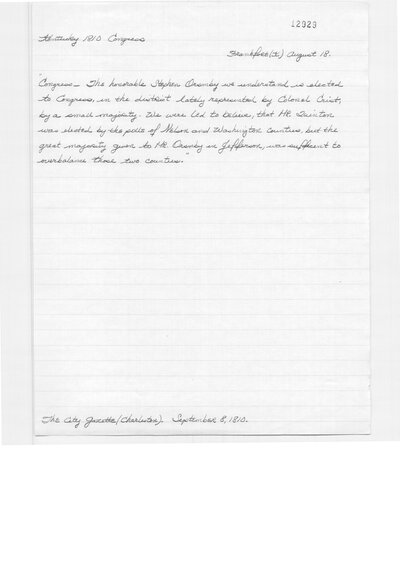 12929
Kentucky 1810 Congress
Frankfort (K) August 18.
"Congress – The honorable Stephen Ormsby we understand is elected
to Congress, in the district lately represented by Colonel Crist,
by a small majority. We were led to believe, that Mr. Quinton
was elected by the polls of Nelson and Washington counties, but the
great majority given to Mr Ormsby in Jefferson, was sufficient to
overbalance those two counties."
The City Gazette (Charleston). September 8, 1810.